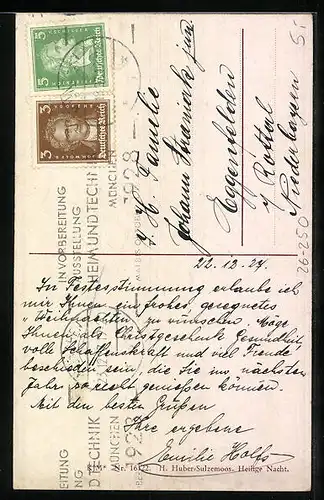 5 F·SCHILLER 5
Deutsches Reich
3 GOETHE 3
Deutsches Reich
IN VORBEREITUNG
AUSSTELLUNG
HEIM UND TECHNIK
MÜNCHEN
1928
H. Familie
Johann
Eggenfelden
Rottal
Niederbayern
26-250
22.12.27.
In Festesstimmung erlaube ich
mir Ihnen ein frohes, gesegnetes
"Weihnachten" zu wünschen. Möge
Ihnen als Christgeschenk Gesundheit,
volle Schaffenskraft und viel Freude
beschieden sein, die Sie im nächsten
Jahr so recht genießen können.
Mit den besten Grüßen
Ihre ergebene
Emilie
Nr. 16122. H. Huber-Sulzemoos. Heilige Nacht.
EITUNG
NG
TECHNIK
MÜNCHEN
1928